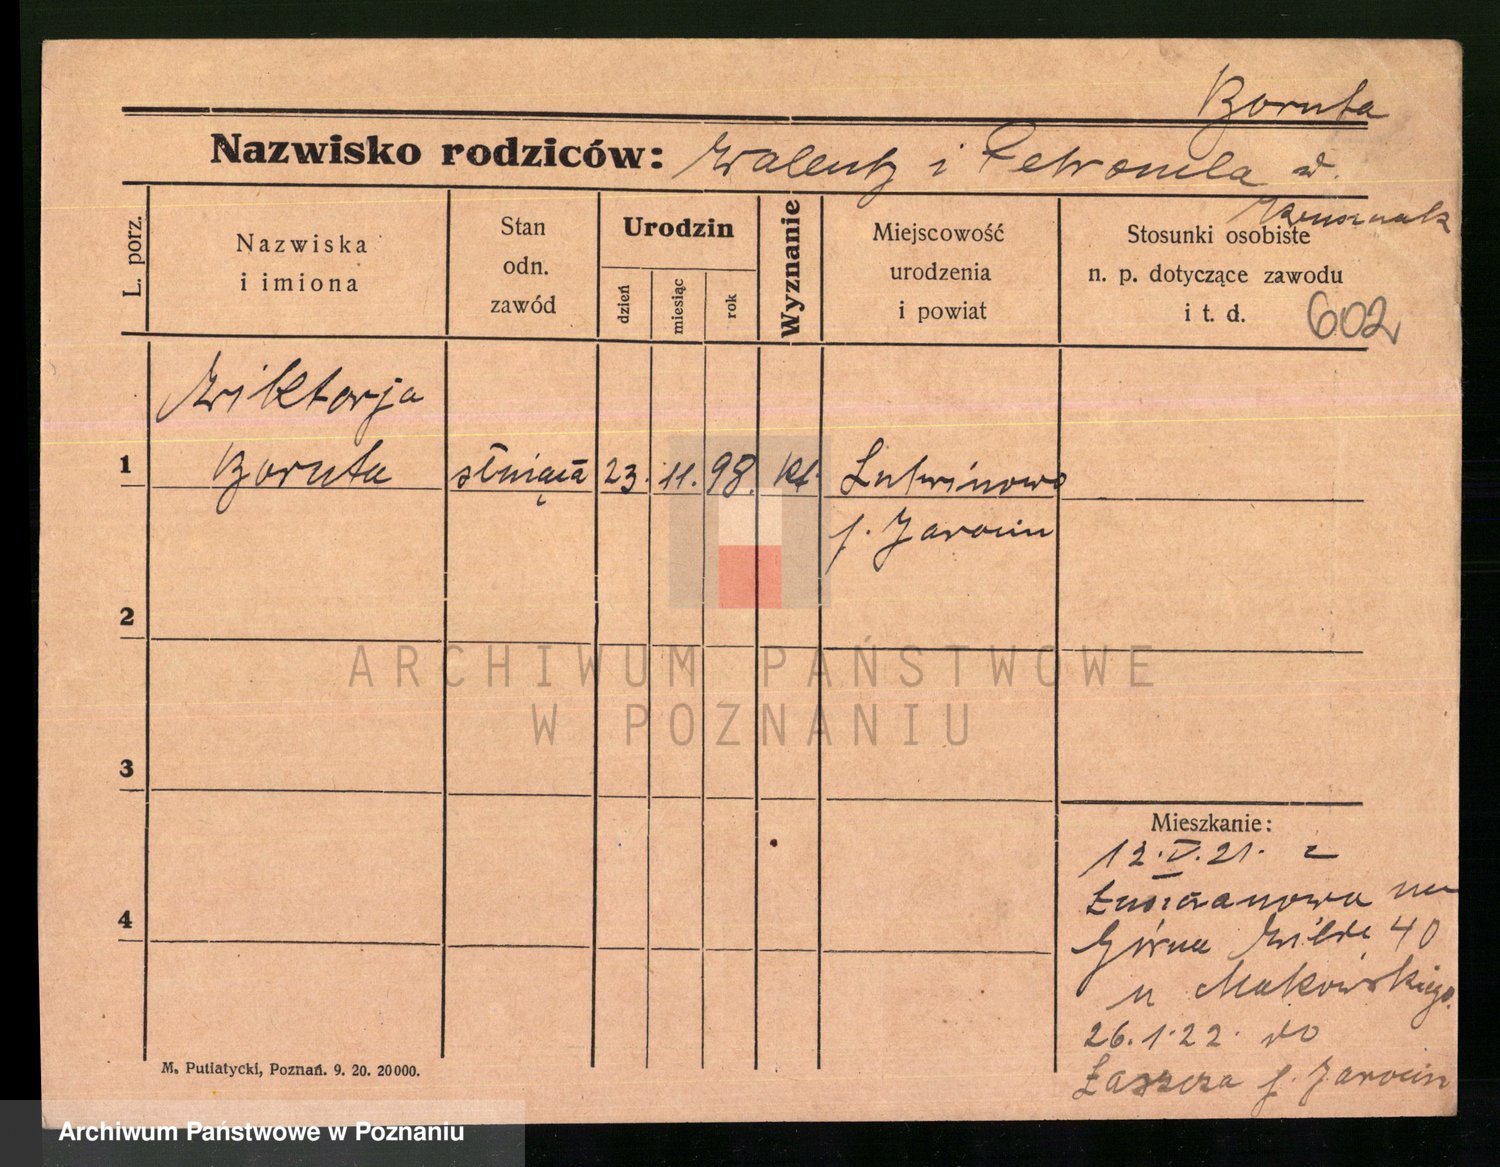 Boruta
Nazwisko rodziców: Walenty i Petronela d.
L. porz.
Nazwiska
i imiona
Stan
odn.
zawód
Urodzin
dzień
miesiąc
rok
Wyznanie
Miejscowość
urodzenia
i powiat
Stosunki osobiste
n. p. dotyczące zawodu
i t. d.
602
Wiktorja
1 Boruta służąca 23. 11. 98. kt. Lutwinowo
p. Jarocin
2
3
4
ARCHIWUM PAŃSTWOWE
W POZNANIU
Mieszkanie:
12.V.21. z
na
Górna Wilda 40
u Makowskiego.
26.1.22. do
Łaszcza p. Jarocin
M. Putiatycki, Poznań. 9. 20. 20000.
Archiwum Państwowe w Poznaniu